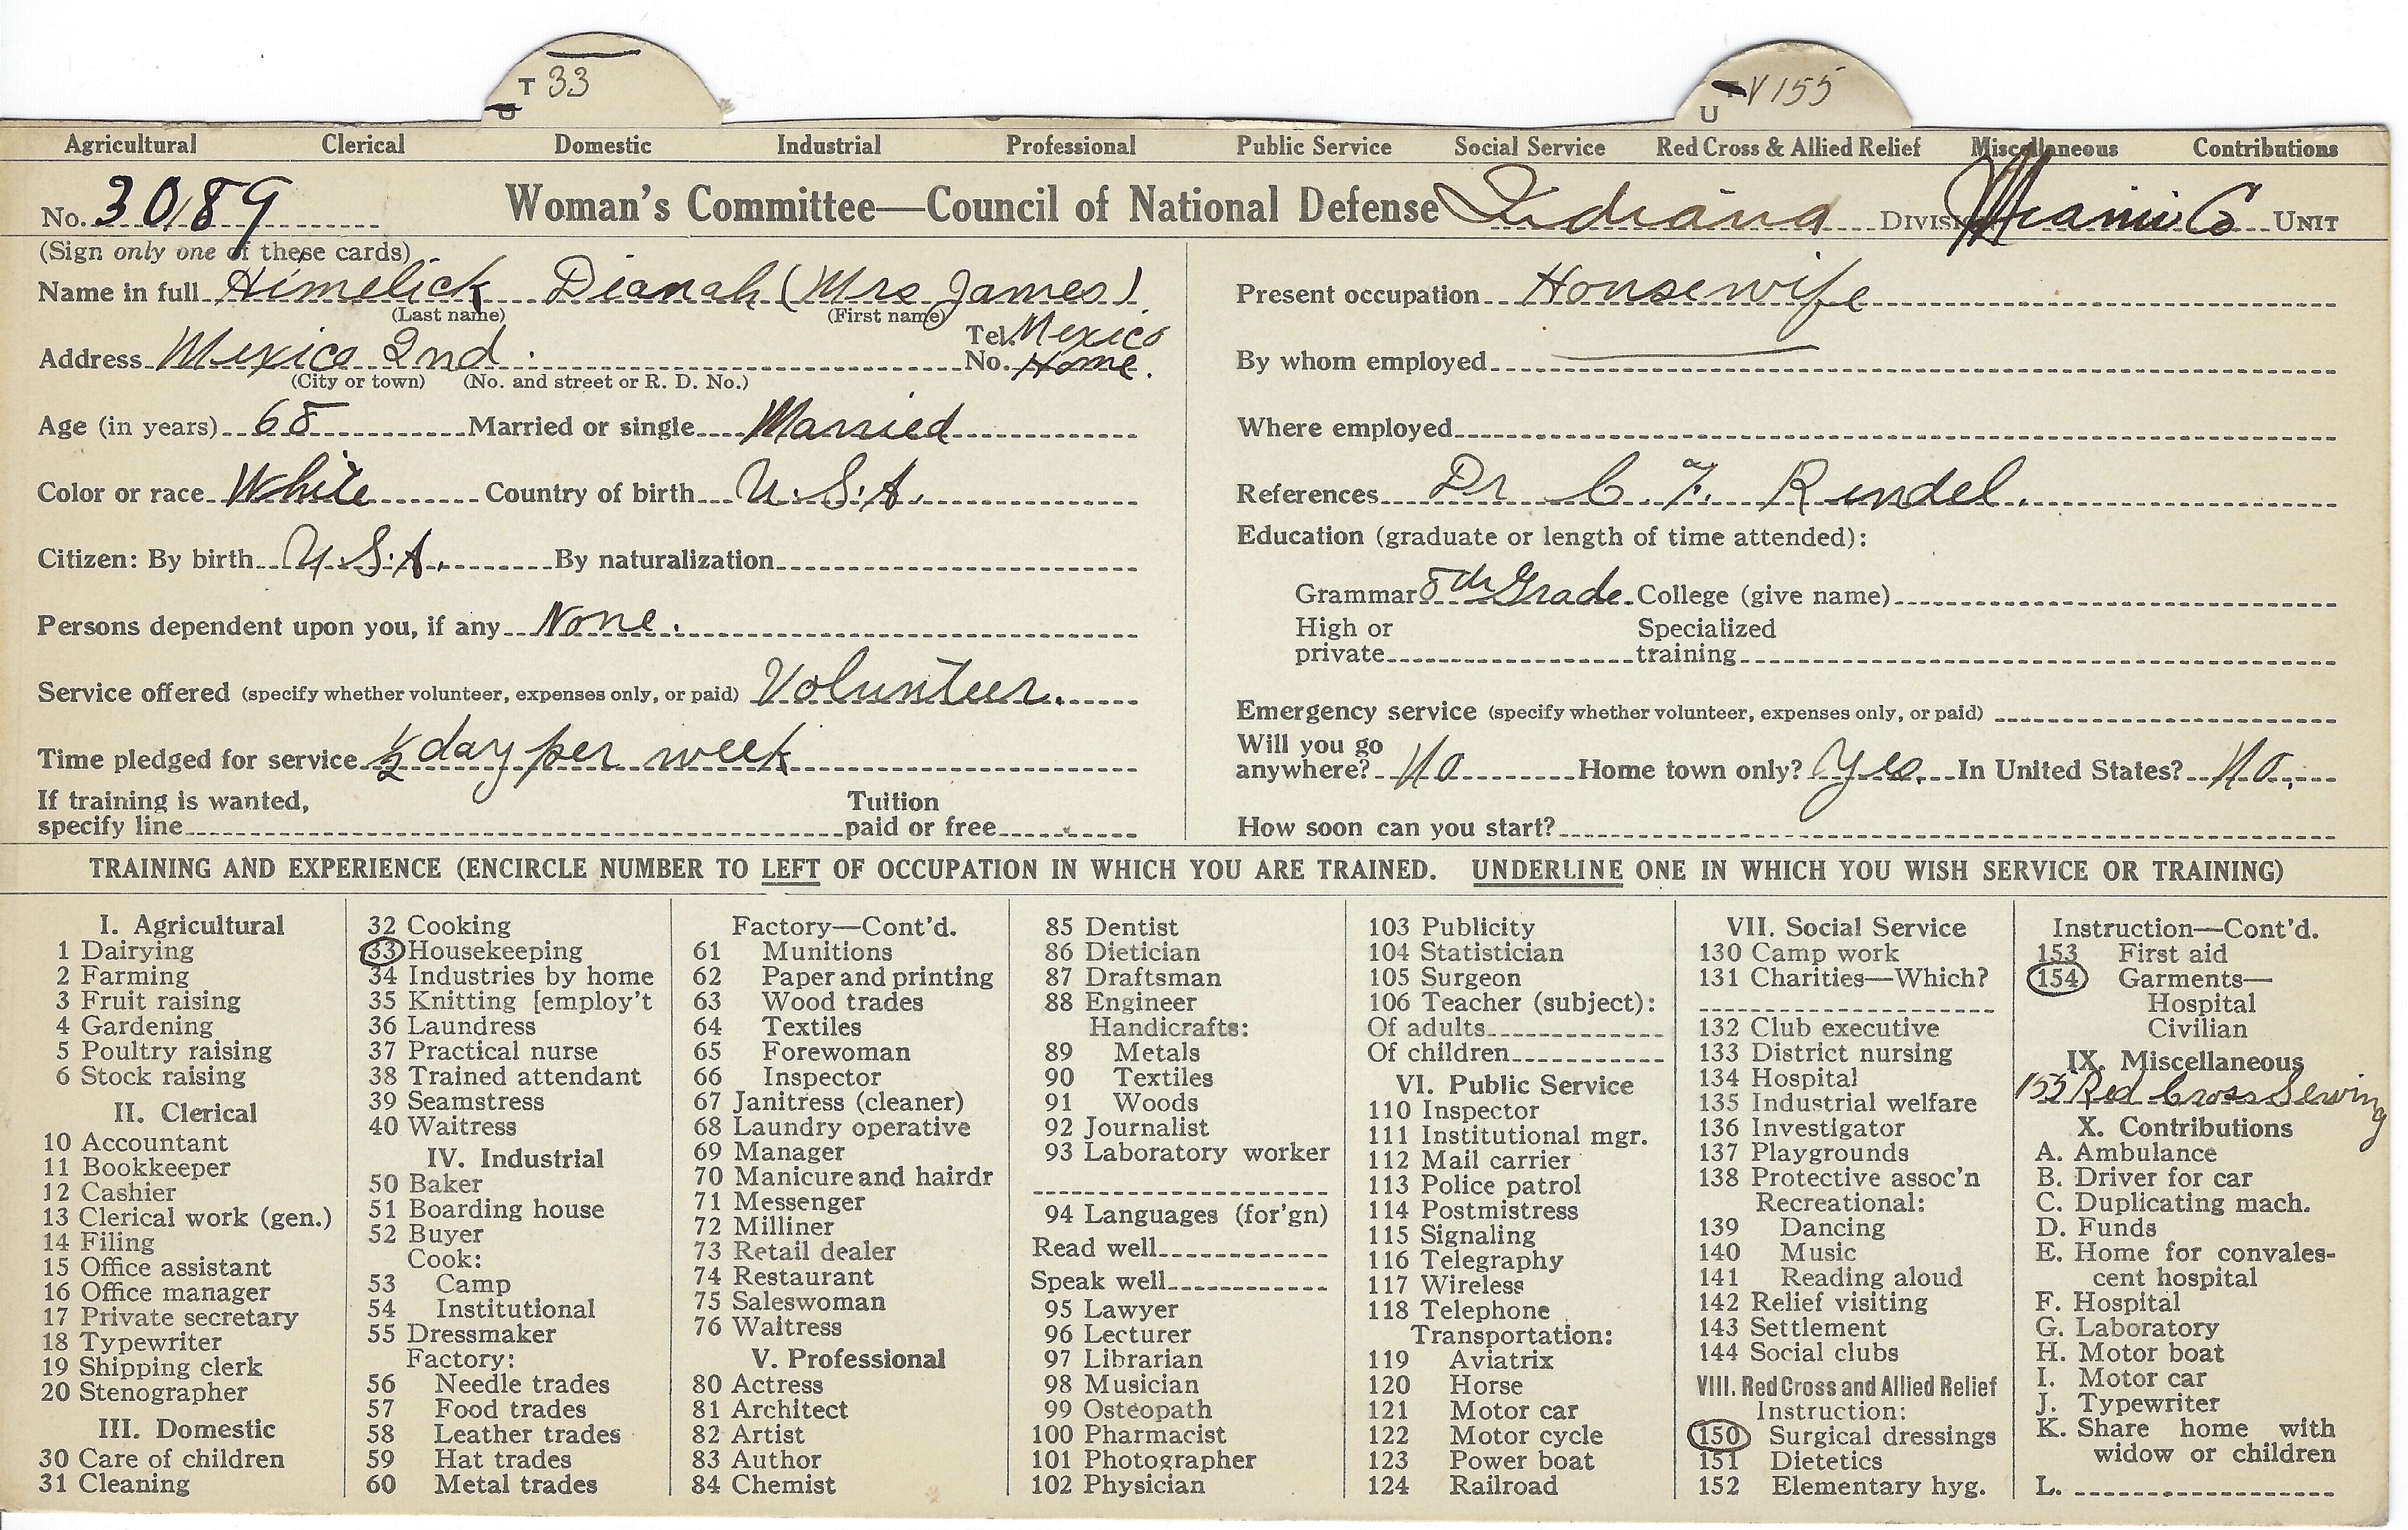 T 33
U
T V 155
U
Agricultural Clerical Domestic Industrial Professional Public Service Social Service Red Cross & Allied Relief Miscellaneous Contributions
No. 3089 Woman's Committee—Council of National Defense Indiana Division Miami Co UNIT
(Sign only one of these cards)
Name in full Himelick Dianah (Mrs James)
(Last name) (First name)
Address Mexico 2nd. Tel. No. Mexico Home.
(City or town) (No. and street or R. D. No.)
Age (in years) 68 Married or single Married
Color or race White Country of birth U.S.A.
Citizen: By birth U.S.A. By naturalization
Persons dependent upon you, if any None.
Service offered (specify whether volunteer, expenses only, or paid) Volunteer.
Time pledged for service ½ day per week
If training is wanted, specify line Tuition paid or free
Present occupation Housewife
By whom employed
Where employed
References Dr C. F. Rendel.
Education (graduate or length of time attended):
Grammar 8th Grade College (give name)
High or private Specialized training
Emergency service (specify whether volunteer, expenses only, or paid)
Will you go anywhere? No Home town only? Yes. In United States? No.
How soon can you start?
TRAINING AND EXPERIENCE (ENCIRCLE NUMBER TO LEFT OF OCCUPATION IN WHICH YOU ARE TRAINED. UNDERLINE ONE IN WHICH YOU WISH SERVICE OR TRAINING)
I. Agricultural
1 Dairying
2 Farming
3 Fruit raising
4 Gardening
5 Poultry raising
6 Stock raising
II. Clerical
10 Accountant
11 Bookkeeper
12 Cashier
13 Clerical work (gen.)
14 Filing
15 Office assistant
16 Office manager
17 Private secretary
18 Typewriter
19 Shipping clerk
20 Stenographer
III. Domestic
30 Care of children
31 Cleaning
32 Cooking
33 Housekeeping
34 Industries by home
35 Knitting [employ't
36 Laundress
37 Practical nurse
38 Trained attendant
39 Seamstress
40 Waitress
IV. Industrial
50 Baker
51 Boarding house
52 Buyer
Cook:
53 Camp
54 Institutional
55 Dressmaker
Factory:
56 Needle trades
57 Food trades
58 Leather trades
59 Hat trades
60 Metal trades
Factory—Cont'd.
61 Munitions
62 Paper and printing
63 Wood trades
64 Textiles
65 Forewoman
66 Inspector
67 Janitress (cleaner)
68 Laundry operative
69 Manager
70 Manicure and hairdr
71 Messenger
72 Milliner
73 Retail dealer
74 Restaurant
75 Saleswoman
76 Waitress
V. Professional
80 Actress
81 Architect
82 Artist
83 Author
84 Chemist
85 Dentist
86 Dietician
87 Draftsman
88 Engineer
Handicrafts:
89 Metals
90 Textiles
91 Woods
92 Journalist
93 Laboratory worker
94 Languages (for'gn)
Read well
Speak well
95 Lawyer
96 Lecturer
97 Librarian
98 Musician
99 Osteopath
100 Pharmacist
101 Photographer
102 Physician
103 Publicity
104 Statistician
105 Surgeon
106 Teacher (subject):
Of adults
Of children
VI. Public Service
110 Inspector
111 Institutional mgr.
112 Mail carrier
113 Police patrol
114 Postmistress
115 Signaling
116 Telegraphy
117 Wireless
118 Telephone
Transportation:
119 Aviatrix
120 Horse
121 Motor car
122 Motor cycle
123 Power boat
124 Railroad
VII. Social Service
130 Camp work
131 Charities—Which?
132 Club executive
133 District nursing
134 Hospital
135 Industrial welfare
136 Investigator
137 Playgrounds
138 Protective assoc'n
Recreational:
139 Dancing
140 Music
141 Reading aloud
142 Relief visiting
143 Settlement
144 Social clubs
VIII. Red Cross and Allied Relief
Instruction:
150 Surgical dressings
151 Dietetics
152 Elementary hyg.
Instruction—Cont'd.
153 First aid
154 Garments—
Hospital
Civilian
IX. Miscellaneous
155 Red Cross Sewing
X. Contributions
A. Ambulance
B. Driver for car
C. Duplicating mach.
D. Funds
E. Home for convales-
cent hospital
F. Hospital
G. Laboratory
H. Motor boat
I. Motor car
J. Typewriter
K. Share home with
widow or children
L.